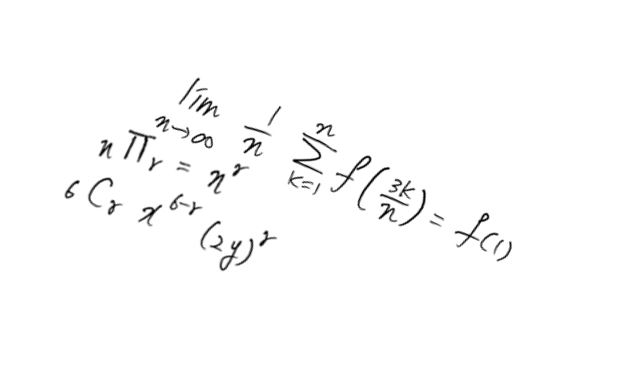 lim n→∞ 1/n Σ k=1 n f(3k/n) = f(1)
nΠr = n^r
6Cr x^(6-r) (2y)^r